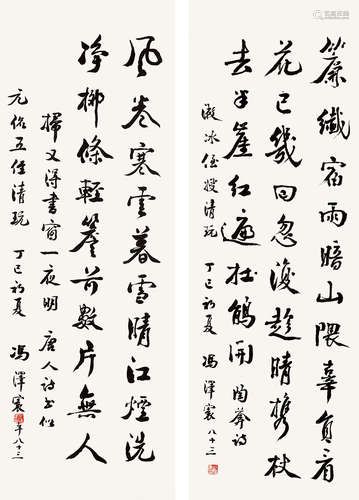 簾纖宿雨暗山隈辜負看
花已幾回忽復趁晴携杖
去半崖紅遍杜鵑開 陶拳詩
凝冰侄嫂清玩 丁巳初夏 馮澤寰 八十三
風卷寒雲暮雪晴江煙洗
净柳條輕簷前數片無人
掃又得書窗一夜明 唐人詩書似
元俗五侄清玩 丁巳初夏 馮澤寰 年八十三